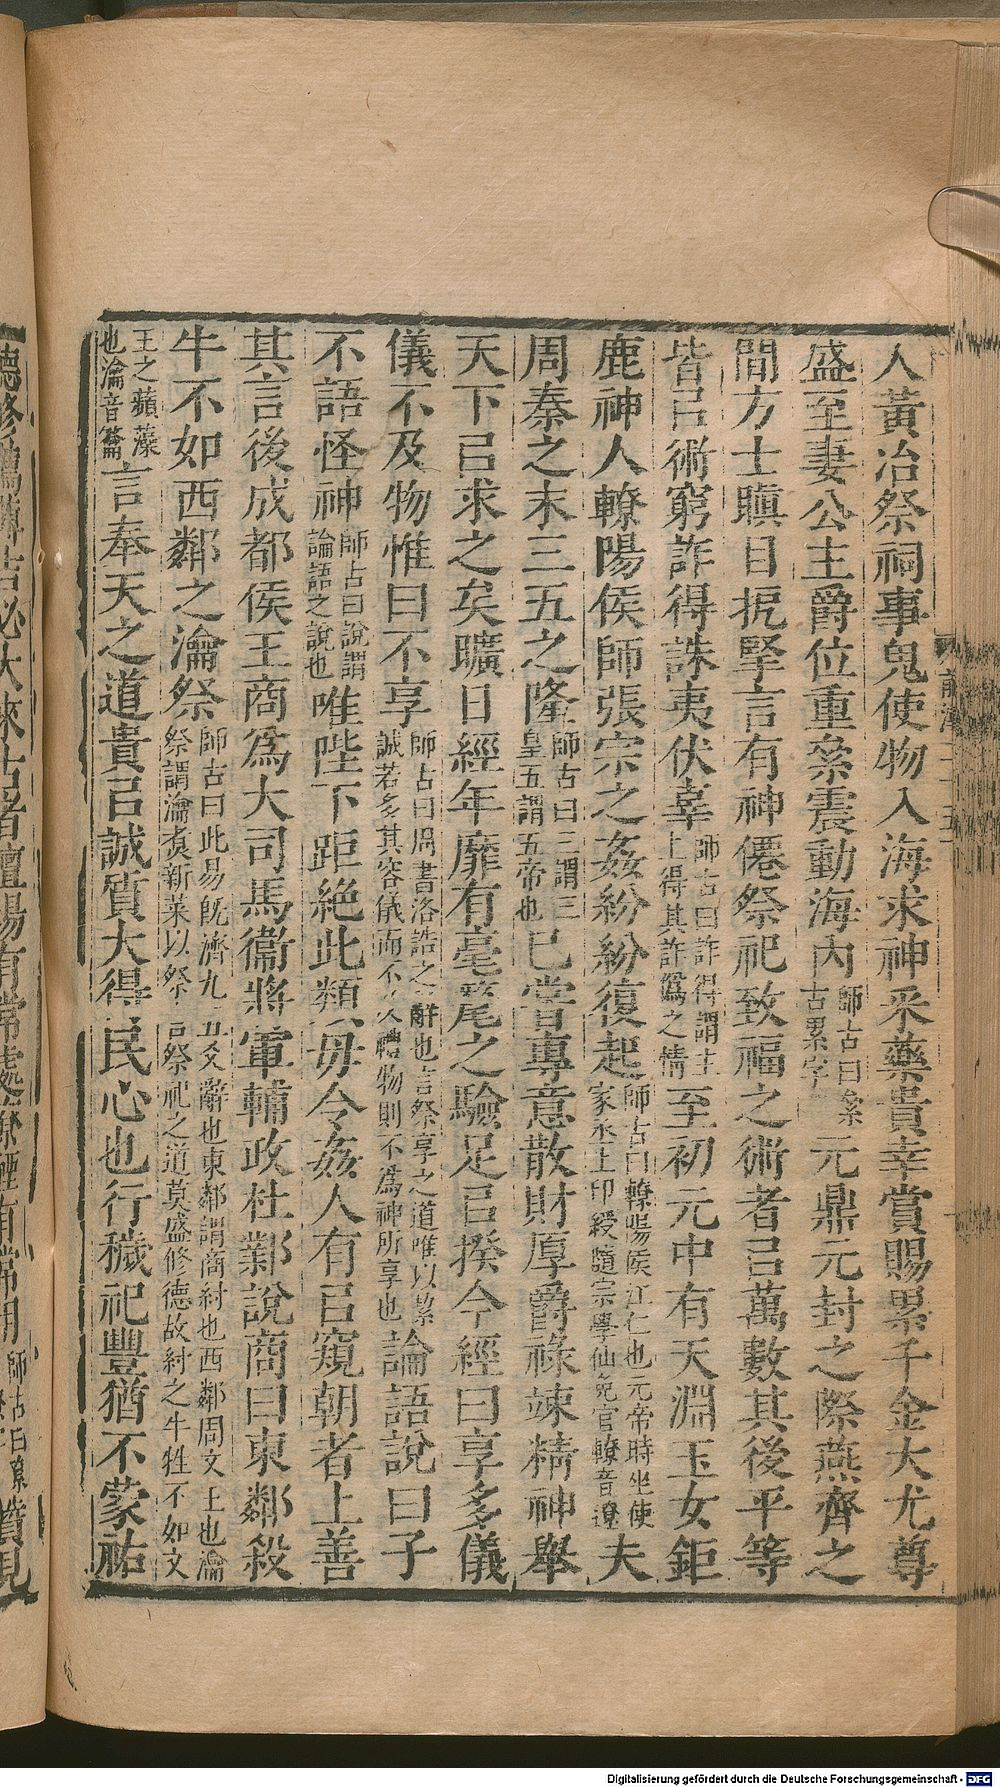 人黃冶祭祠事鬼使物入海求神采藥貴幸賞賜累千金大尤尊
盛至妻公主爵位重絫震動海內師古曰絫古累字元鼎元封之際燕齊之
間方士瞋目扼掔言有神僊祭祀致福之術者㠯萬數其後平等
皆㠯術窮詐得誅夷伏辜師古曰詐得謂主上得其詐僞之情至初元中有天淵玉女鉅
鹿神人轑陽侯師張宗之姦紛紛復起師古曰轑陽侯江仁也元帝時坐使家丞上印綬隨宗學仙免官轑音遼夫
周秦之末三五之隆師古曰三謂三皇五謂五帝也已嘗專意散財厚爵祿竦精神舉
天下㠯求之矣曠日經年靡有毫氂之驗足㠯揆今經曰享多儀
儀不及物惟曰不享師古曰周書洛誥之辭也言祭享之道唯以絜誠若多其容儀而不及禮物則不為神所享也論語說曰子
不語怪神師古曰說謂論語之說也唯陛下距絕此類毋令姦人有㠯窺朝者上善
其言後成都侯王商為大司馬衞將軍輔政杜鄴說商曰東鄰殺
牛不如西鄰之瀹祭師古曰此易旣濟九五爻辭也東鄰謂商紂也西鄰周文王也瀹祭謂瀹煑新菜以祭言祭祀之道莫盛修德故紂之牛牲不如文
王之蘋藻也瀹音籥言奉天之道貴㠯誠質大得民心也行穢祀豐猶不蒙祐
Digitalisierung gefördert durch die Deutsche Forschungsgemeinschaft - DFG